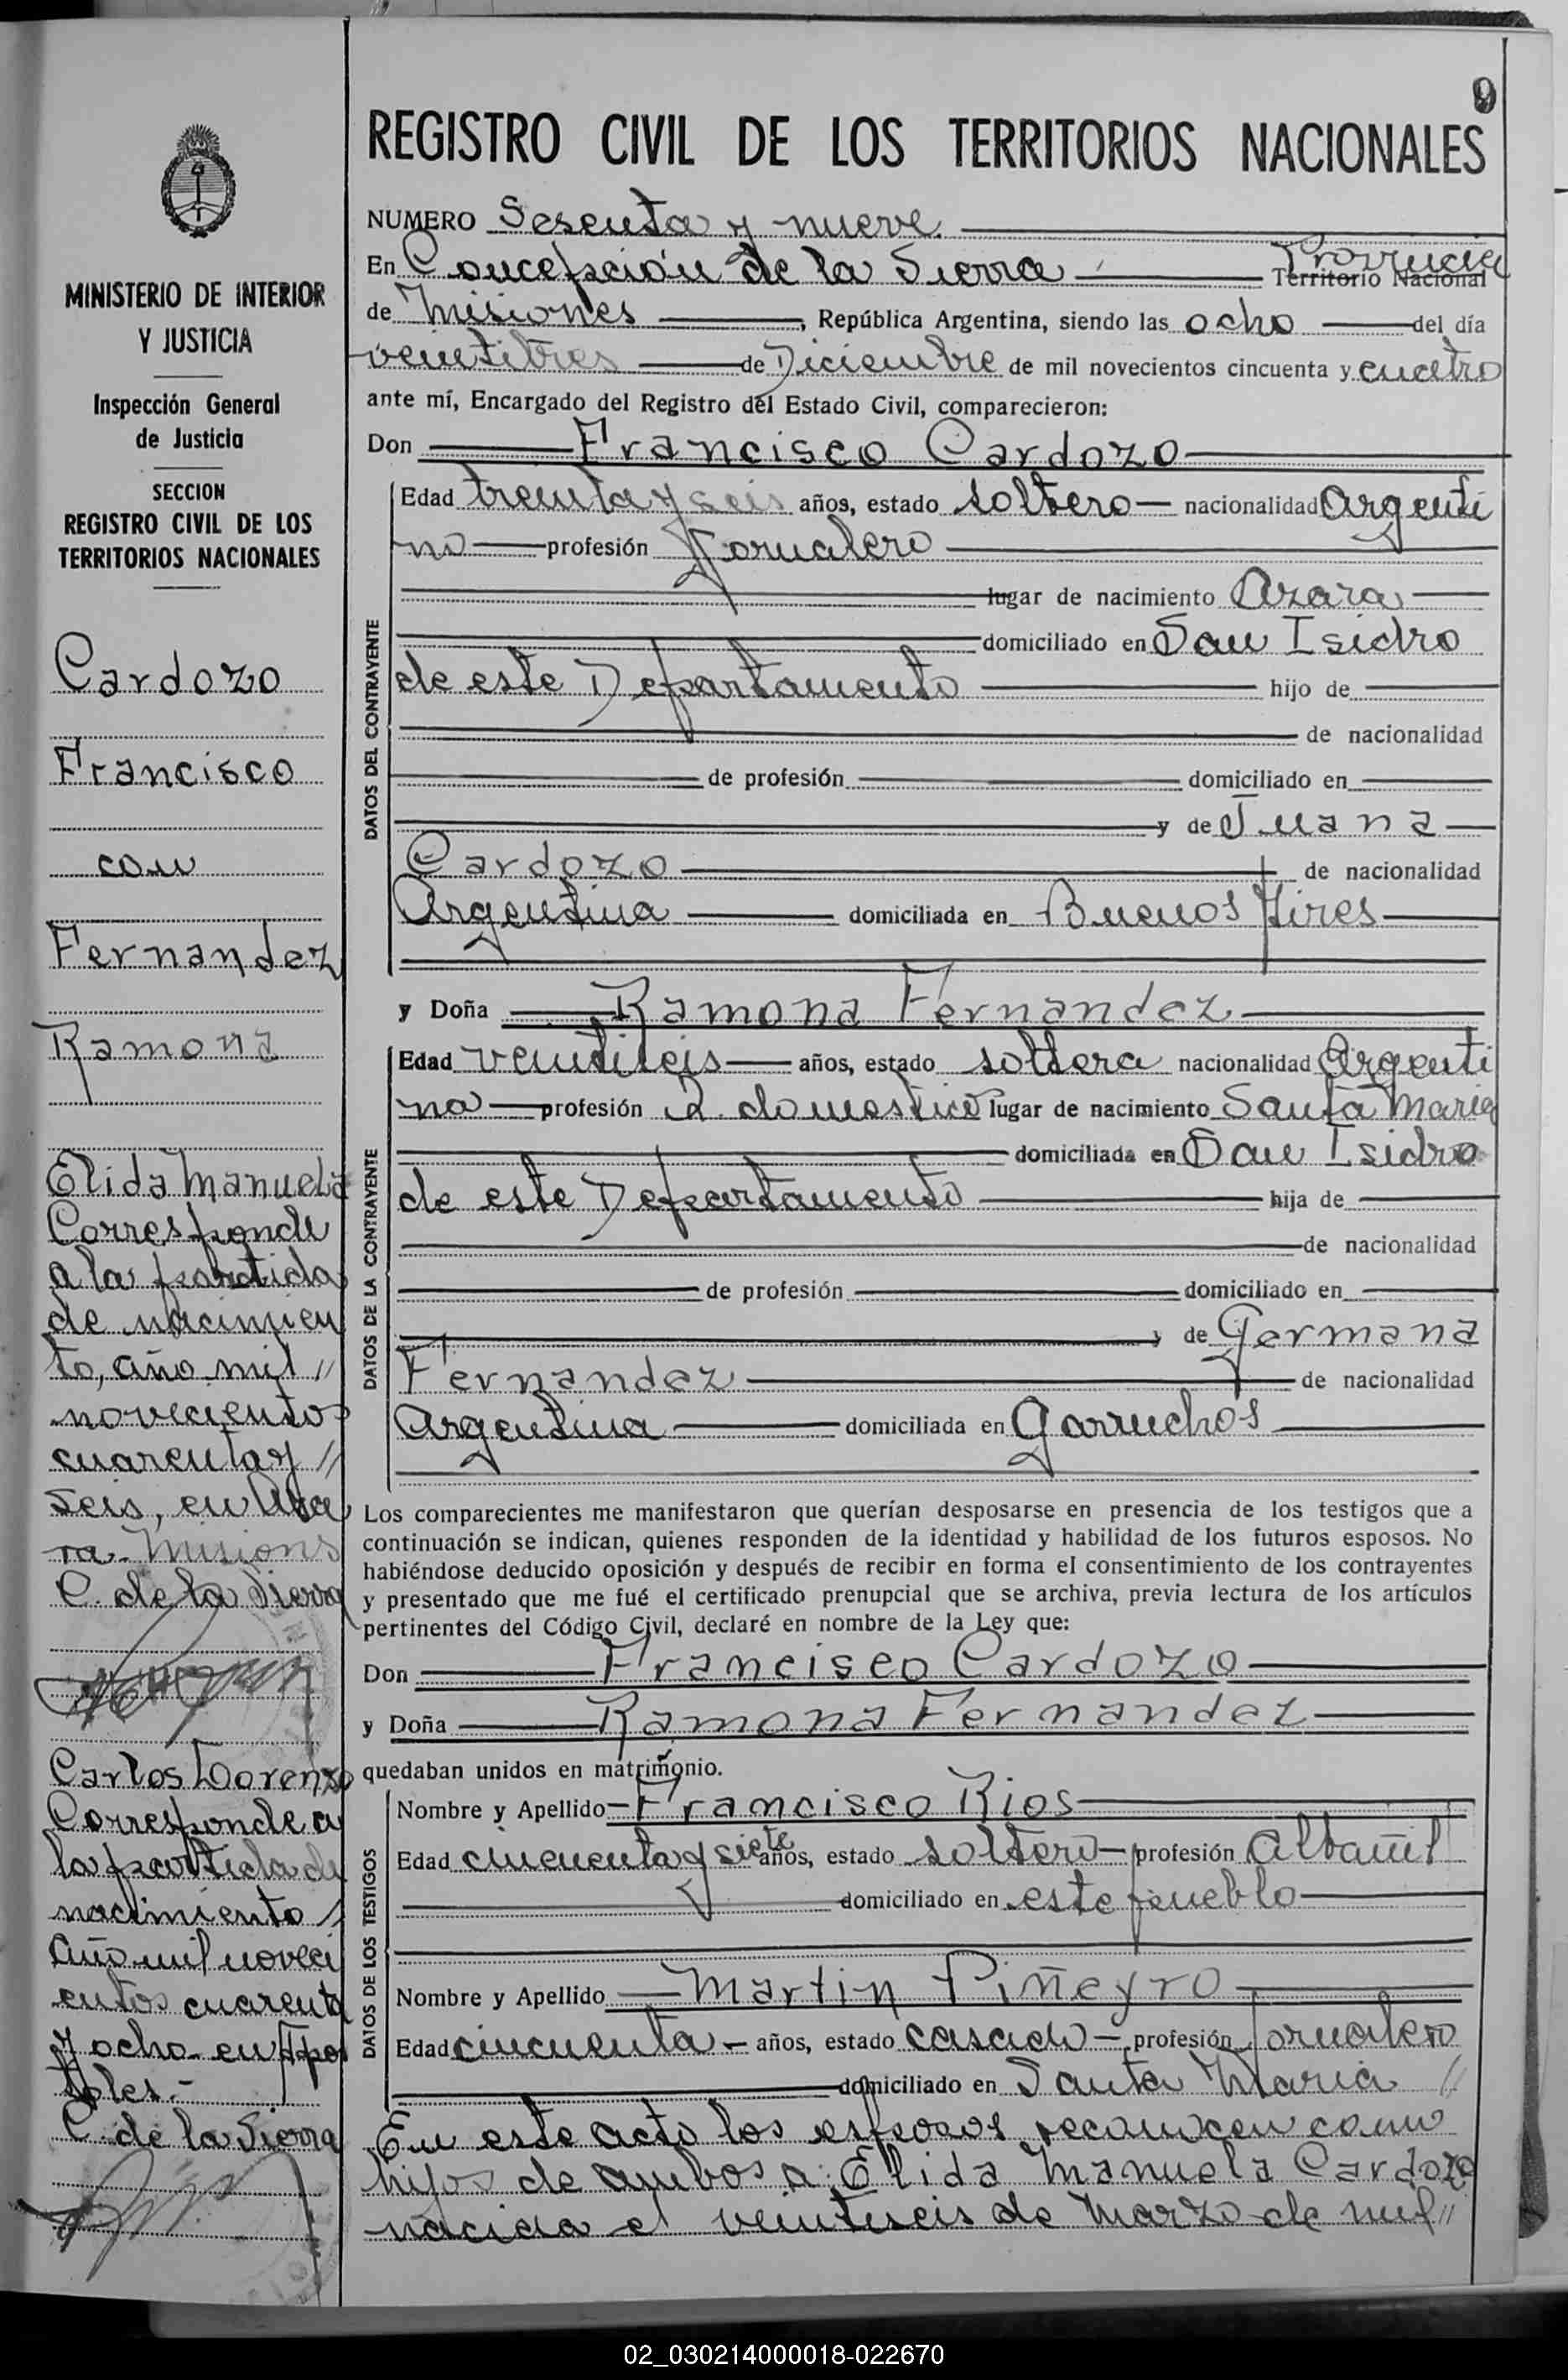 9
REGISTRO CIVIL DE LOS TERRITORIOS NACIONALES
MINISTERIO DE INTERIOR
Y JUSTICIA
Inspección General
de Justicia
SECCION
REGISTRO CIVIL DE LOS
TERRITORIOS NACIONALES
Cardozo
Francisco
con
Fernandez
Ramona
Elida Manuela
Corresponde
a la partida
de nacimien
to, año mil //
novecientos
cuarenta y //
seis, en Aza
ra - Misiones
C. de la Sierra
Carlos Lorenzo
Corresponde a
la partida de
nacimiento /
año mil noveci
entos cuarenta
y ocho - en Apos
toles.-
C. de la Sierra
NUMERO Sesenta y nueve.
En Concepción de la Sierra Provincia Territorio Nacional
de Misiones, República Argentina, siendo las ocho del día
veintitres de Diciembre de mil novecientos cincuenta y cuatro
ante mí, Encargado del Registro del Estado Civil, comparecieron:
Don Francisco Cardozo
DATOS DEL CONTRAYENTE
Edad treinta y seis años, estado soltero nacionalidad Argenti
no profesión Jornalero
lugar de nacimiento Azara
domiciliado en San Isidro
de este Departamento hijo de
de nacionalidad
de profesión domiciliado en
y de Juana
Cardozo de nacionalidad
Argentina domiciliada en Buenos Aires
y Doña Ramona Fernandez
DATOS DE LA CONTRAYENTE
Edad veintiseis años, estado soltera nacionalidad Argenti
na profesión Q. domestico lugar de nacimiento Santa Maria
domiciliada en San Isidro
de este Departamento hija de
de nacionalidad
de profesión domiciliado en
y de Germana
Fernandez de nacionalidad
Argentina domiciliada en Garruchos
Los comparecientes me manifestaron que querían desposarse en presencia de los testigos que a
continuación se indican, quienes responden de la identidad y habilidad de los futuros esposos. No
habiéndose deducido oposición y después de recibir en forma el consentimiento de los contrayentes
y presentado que me fué el certificado prenupcial que se archiva, previa lectura de los artículos
pertinentes del Código Civil, declaré en nombre de la Ley que:
Don Francisco Cardozo
y Doña Ramona Fernandez
quedaban unidos en matrimonio.
DATOS DE LOS TESTIGOS
Nombre y Apellido Francisco Rios
Edad cincuenta y siete años, estado soltero profesión Albañil
domiciliado en este pueblo
Nombre y Apellido Martin Piñeyro
Edad cincuenta años, estado casado profesión Jornalero
domiciliado en Santa Maria //
En este acto los esposos reconocen como
hijos de ambos a: Elida Manuela Cardozo
nacida el veintiseis de Marzo de mil //
02_030214000018-022670